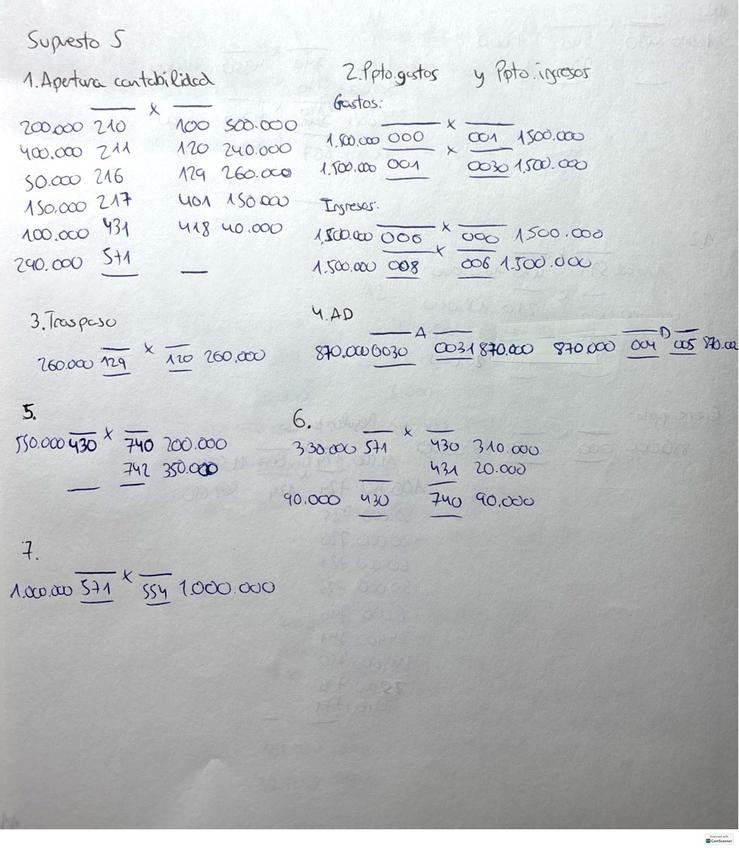 Supuesto 5
1. Apertura contabilidad
x
200.000 210 100 500.000
400.000 211 120 240.000
50.000 216 129 260.000
150.000 217 401 150.000
100.000 431 418 40.000
290.000 571
2. Ppto. gastos y Ppto. ingresos
Gastos:
x
1.500.000 000 001 1500.000
x
1.500.000 001 0030 1.500.000
Ingresos.
x
1.500.000 006 000 1500.000
x
1.500.000 008 006 1.500.000
3. Traspaso
x
260.000 129 120 260.000
4. AD
A D
870.000 0030 0031 870.000 870.000 004 005 870.00
5.
x
550.000 430 740 200.000
742 350.000
6.
x
330.000 571 430 310.000
431 20.000
90.000 430 740 90.000
7.
x
1.000.000 571 554 1.000.000
CamScanner